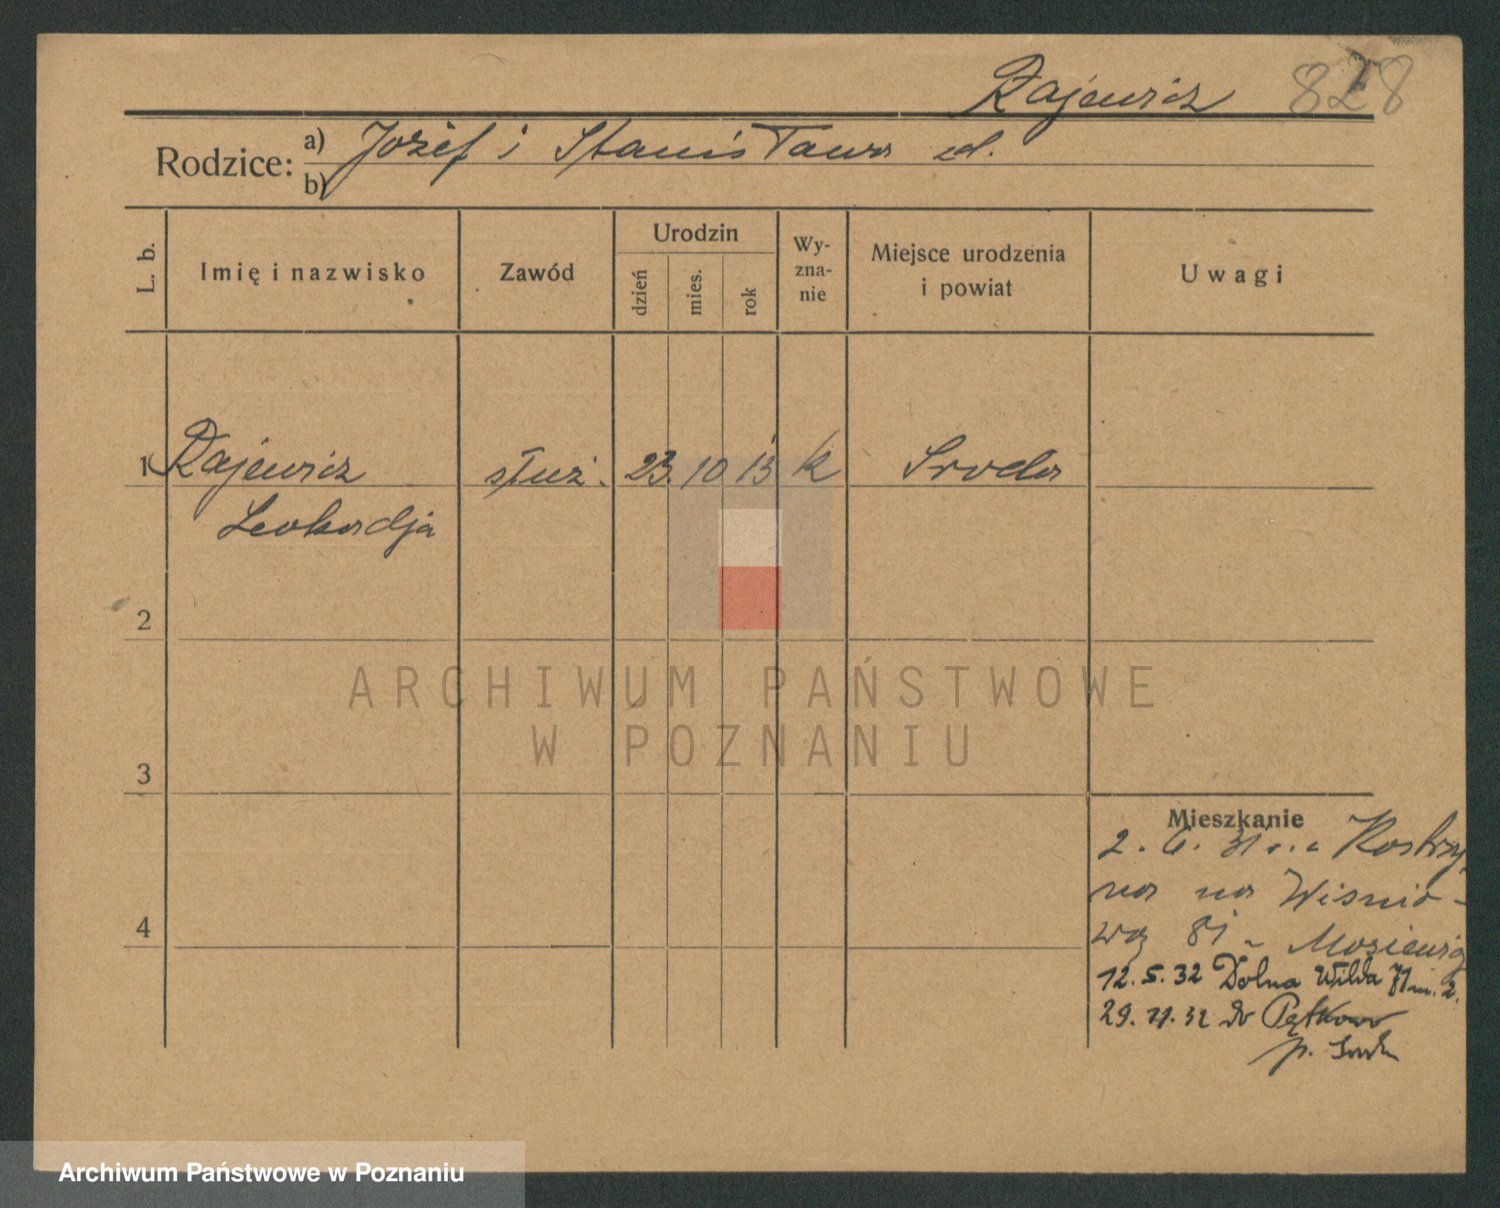 Rajewicz 828
Rodzice: a) Józef i Stanisława zd.
b)
L. b. Imię i nazwisko Zawód Urodzin dzień mies. rok Wyznanie Miejsce urodzenia i powiat Uwagi
1 Rajewicz służ. 23. 10 13 k Sroda
Leokadja
2
3
4
Mieszkanie
2. 6. 31 r. z Kostrzy
na na Wisnio-
wą 81 -
12. 5. 32 Dolna Wilda 71 m. 2.
29. 11. 32 do Pętkowo
p. Środa
ARCHIWUM PAŃSTWOWE
W POZNANIU
Archiwum Państwowe w Poznaniu